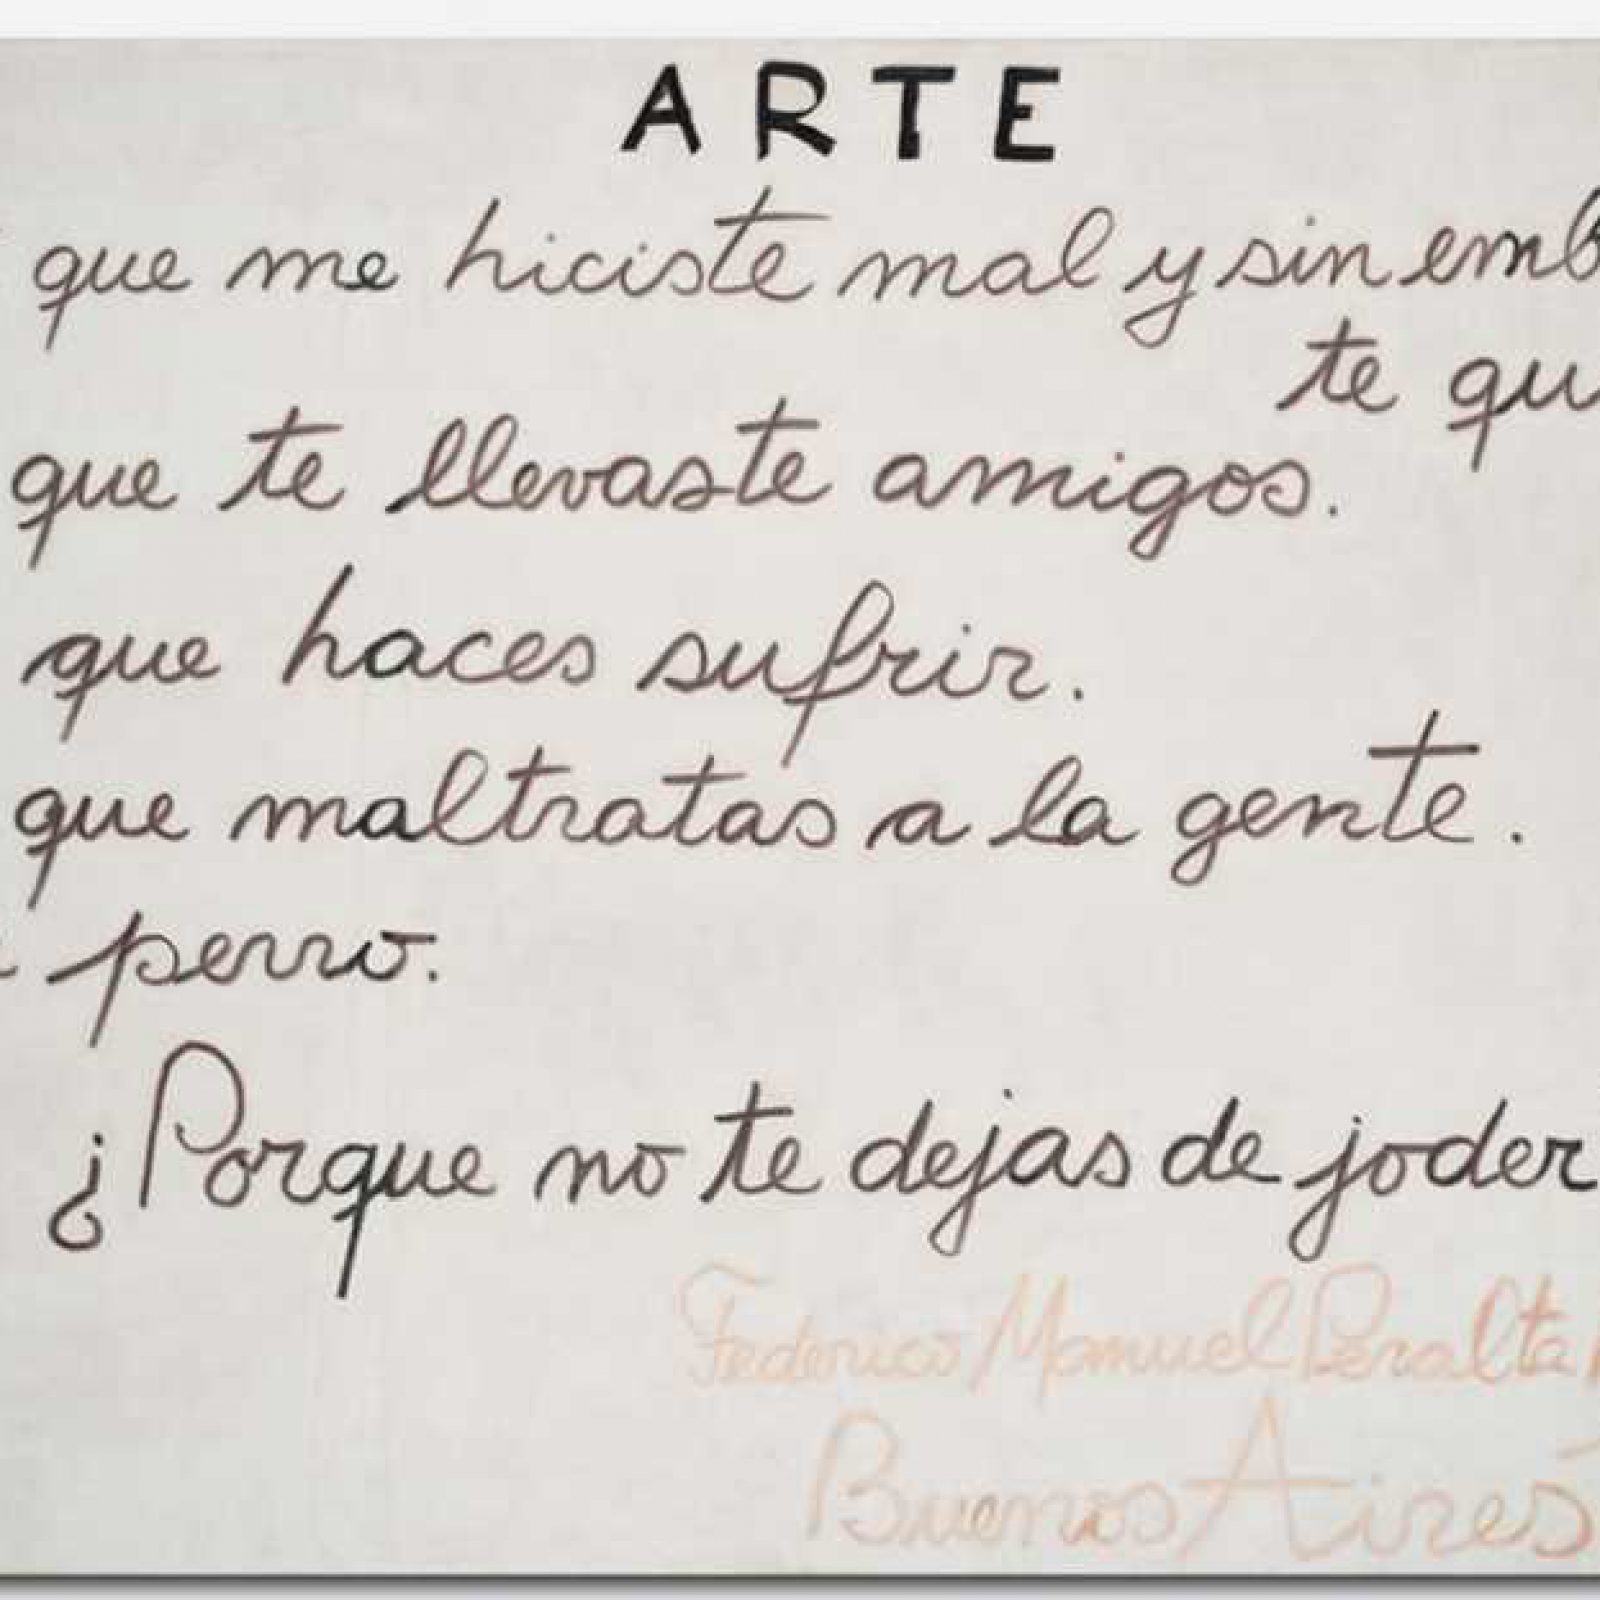 ARTE
que me hiciste mal y sin emb
te qu
que te llevaste amigos.
que haces sufrir.
que maltratas a la gente.
perro.
¿Porque no te dejas de joder
Federico Manuel Peralta
Buenos Aires